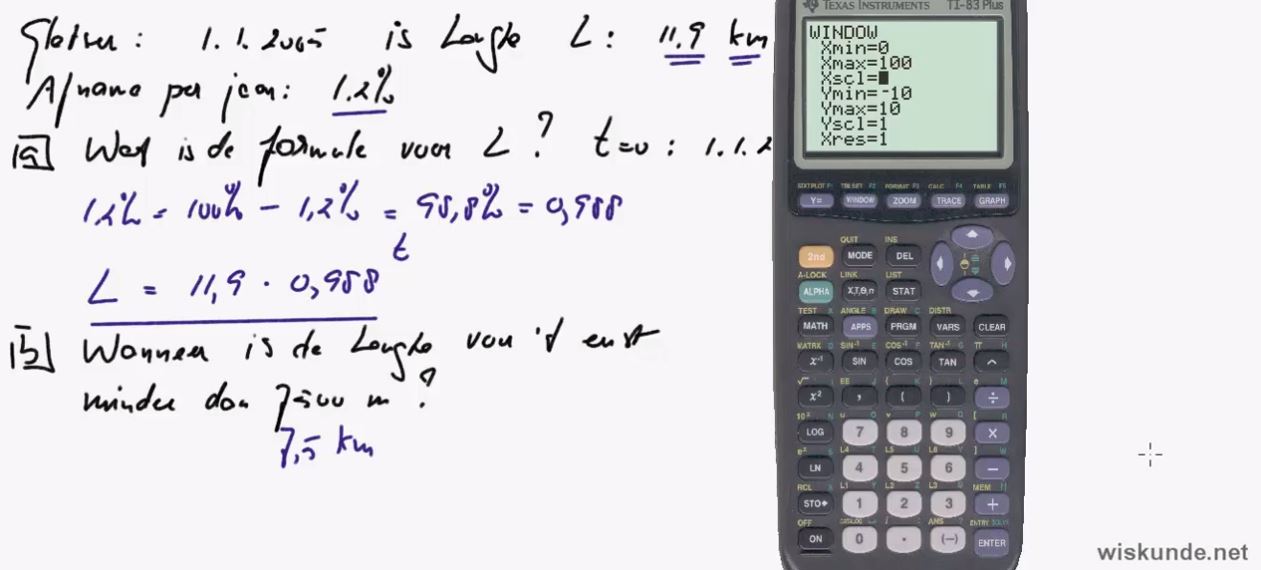 Gletser: 1.1.2005 is Lengte L: 11,9 km
Afname per jaar: 1.2%
a Wat is de formule voor L? t=0: 1.1.2
1,2% = 100% - 1,2% = 98,8% = 0,988
L = 11,9 · 0,988^t
b Wanneer is de Lengte van 't eerst
minder dan 7500 m?
7,5 km
TEXAS INSTRUMENTS TI-83 Plus
WINDOW
Xmin=0
Xmax=100
Xscl=
Ymin=-10
Ymax=10
Yscl=1
Xres=1
STATPLOT F1 TBLSET F2 FORMAT F3 CALC F4 TABLE F5
Y= WINDOW ZOOM TRACE GRAPH
QUIT INS
2nd MODE DEL
A-LOCK LINK LIST
ALPHA X,T,Θ,n STAT
TEST A ANGLE B DRAW C DISTR
MATH APPS PRGM VARS CLEAR
MATRX D SIN⁻¹ E COS⁻¹ F TAN⁻¹ G π H
x⁻¹ SIN COS TAN ^
√ I EE J { K } L e M
x² , ( ) ÷
10ˣ N u O v P w Q [ R
LOG 7 8 9 ×
eˣ S L4 T L5 U L6 V ] W
LN 4 5 6 −
RCL X L1 Y L2 Z L3 θ MEM "
STO▸ 1 2 3 +
OFF CATALOG i : ANS ? ENTRY SOLVE
ON 0 . (−) ENTER
wiskunde.net